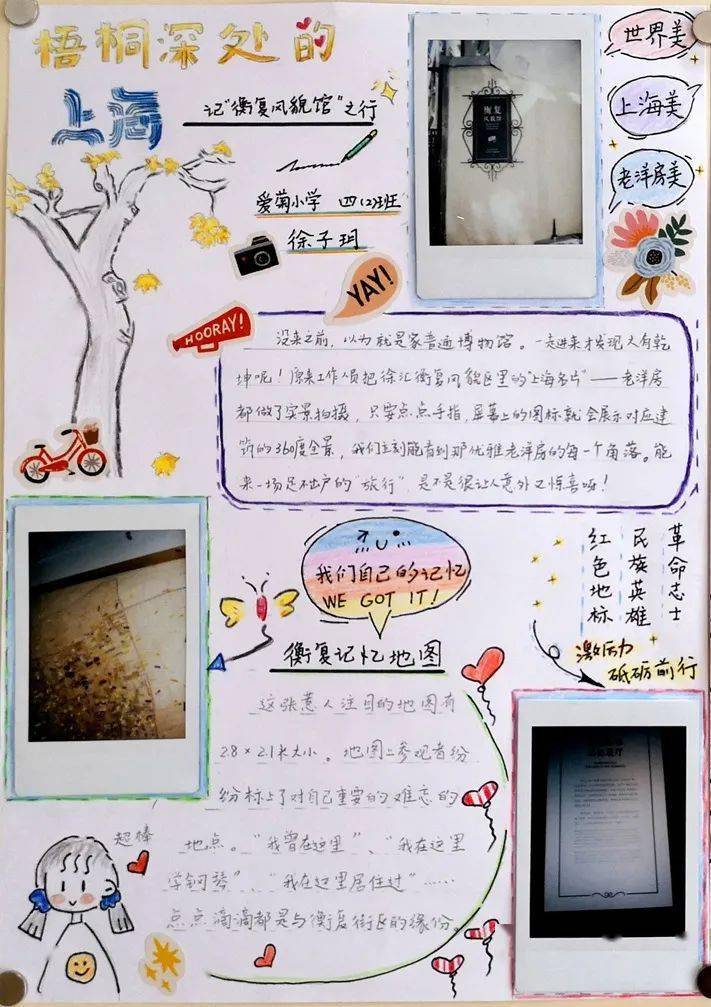 梧桐深处的
上海
记“衡复风貌馆”之行
爱菊小学 四(2)班
徐子玥
衡复
风貌馆
世界美
上海美
老洋房美
YAY!
HOORAY!
没来之前，以为就是家普通博物馆。一走进来才发现大有乾
坤呢！原来工作人员把徐汇衡复风貌区里的“上海名片”——老洋房
都做了实景拍摄，只要点点手指，屏幕上的图标就会展示对应建
筑的360度全景，我们立刻能看到那优雅老洋房的每一个角落。能
来一场足不出户的“旅行”，是不是很让人意外又惊喜呀！
我们自己的记忆
WE GOT IT!
衡复记忆地图
这张惹人注目的地图有
2.8×2.1米大小。地图上参观者纷
纷标上了对自己重要的难忘的
地点。“我曾在这里”、“我在这里
学钢琴”、“我在这里居住过”……
点点滴滴都是与衡复街区的缘份。
超棒
革命志士
民族英雄
红色地标
激励
砥砺前行